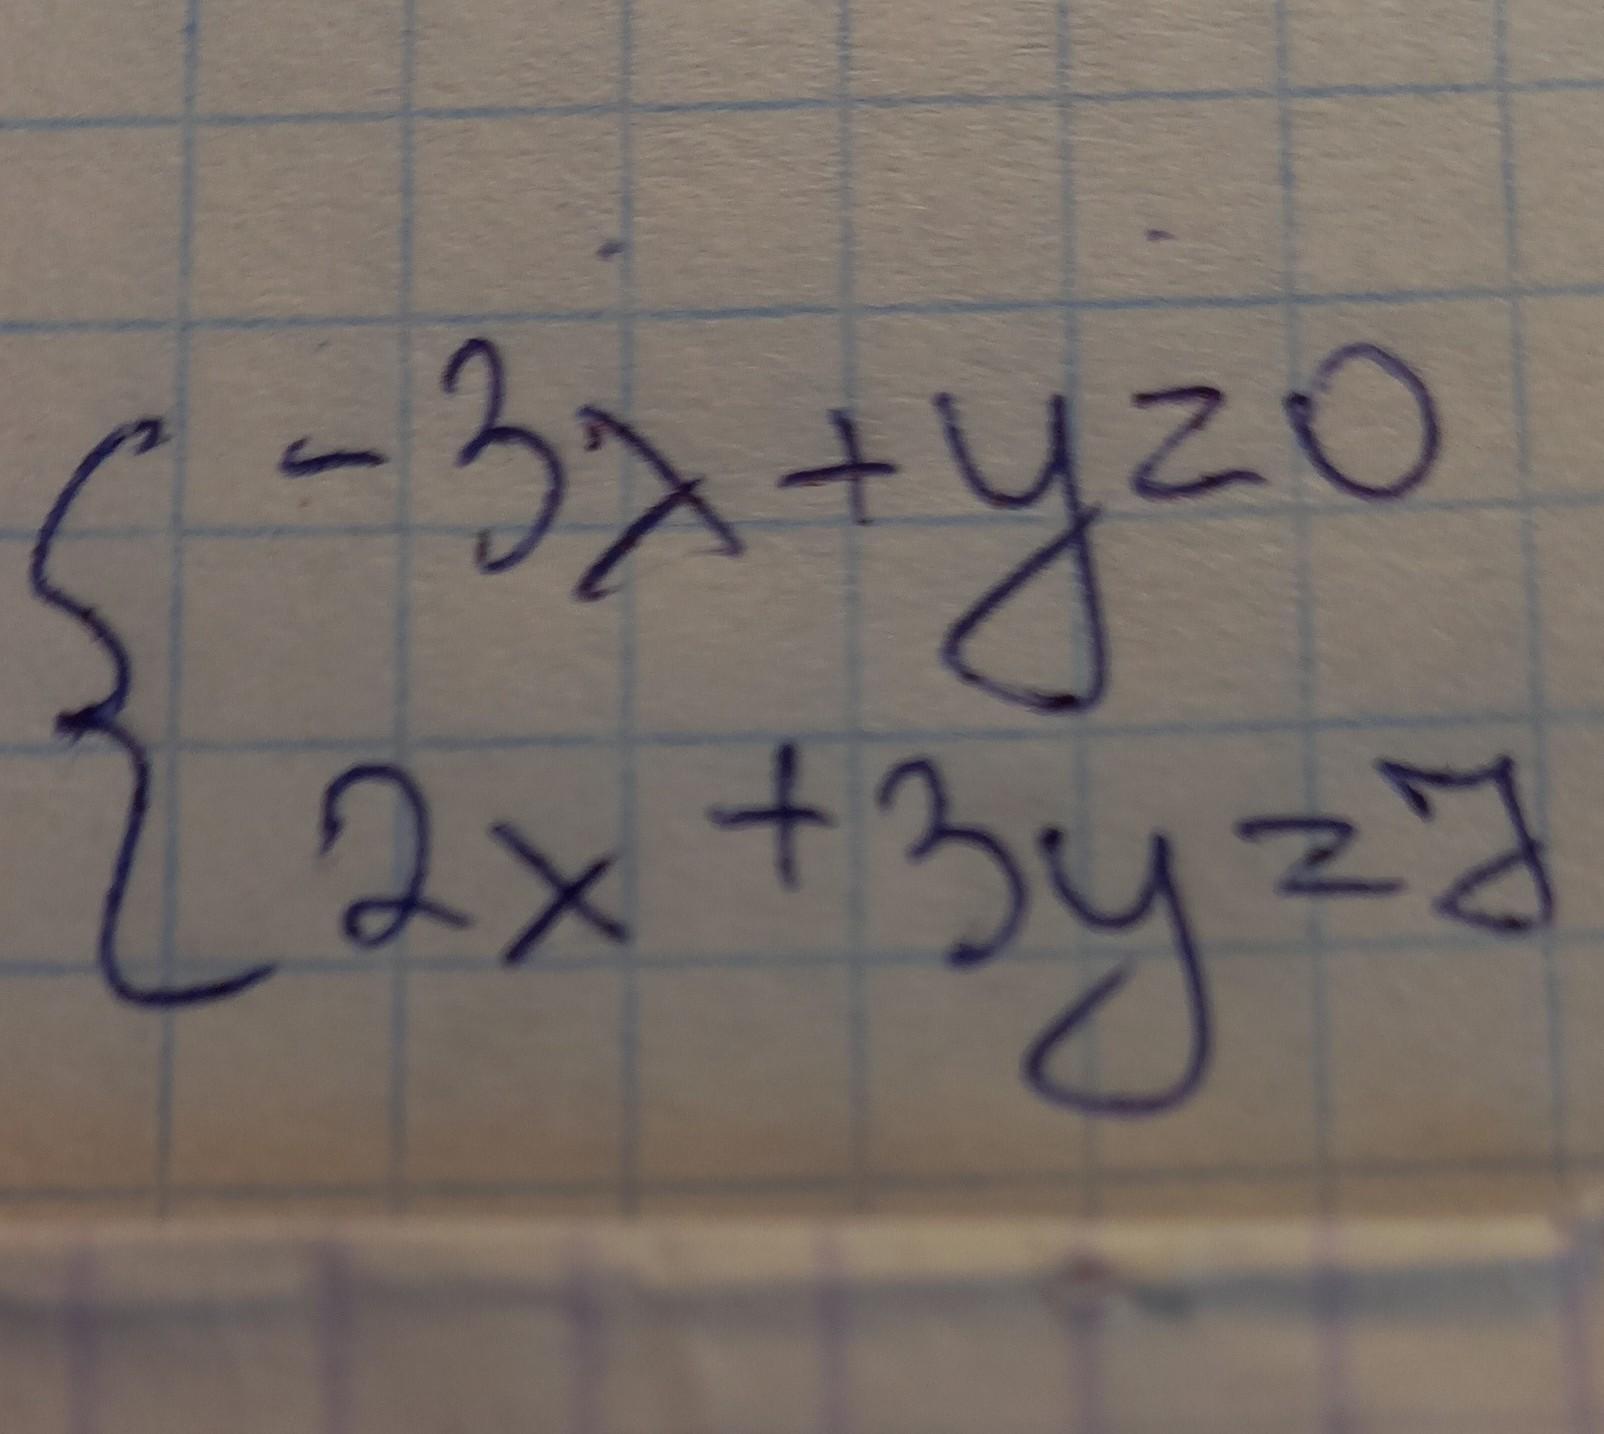 -3x+y=0
2x+3y=7